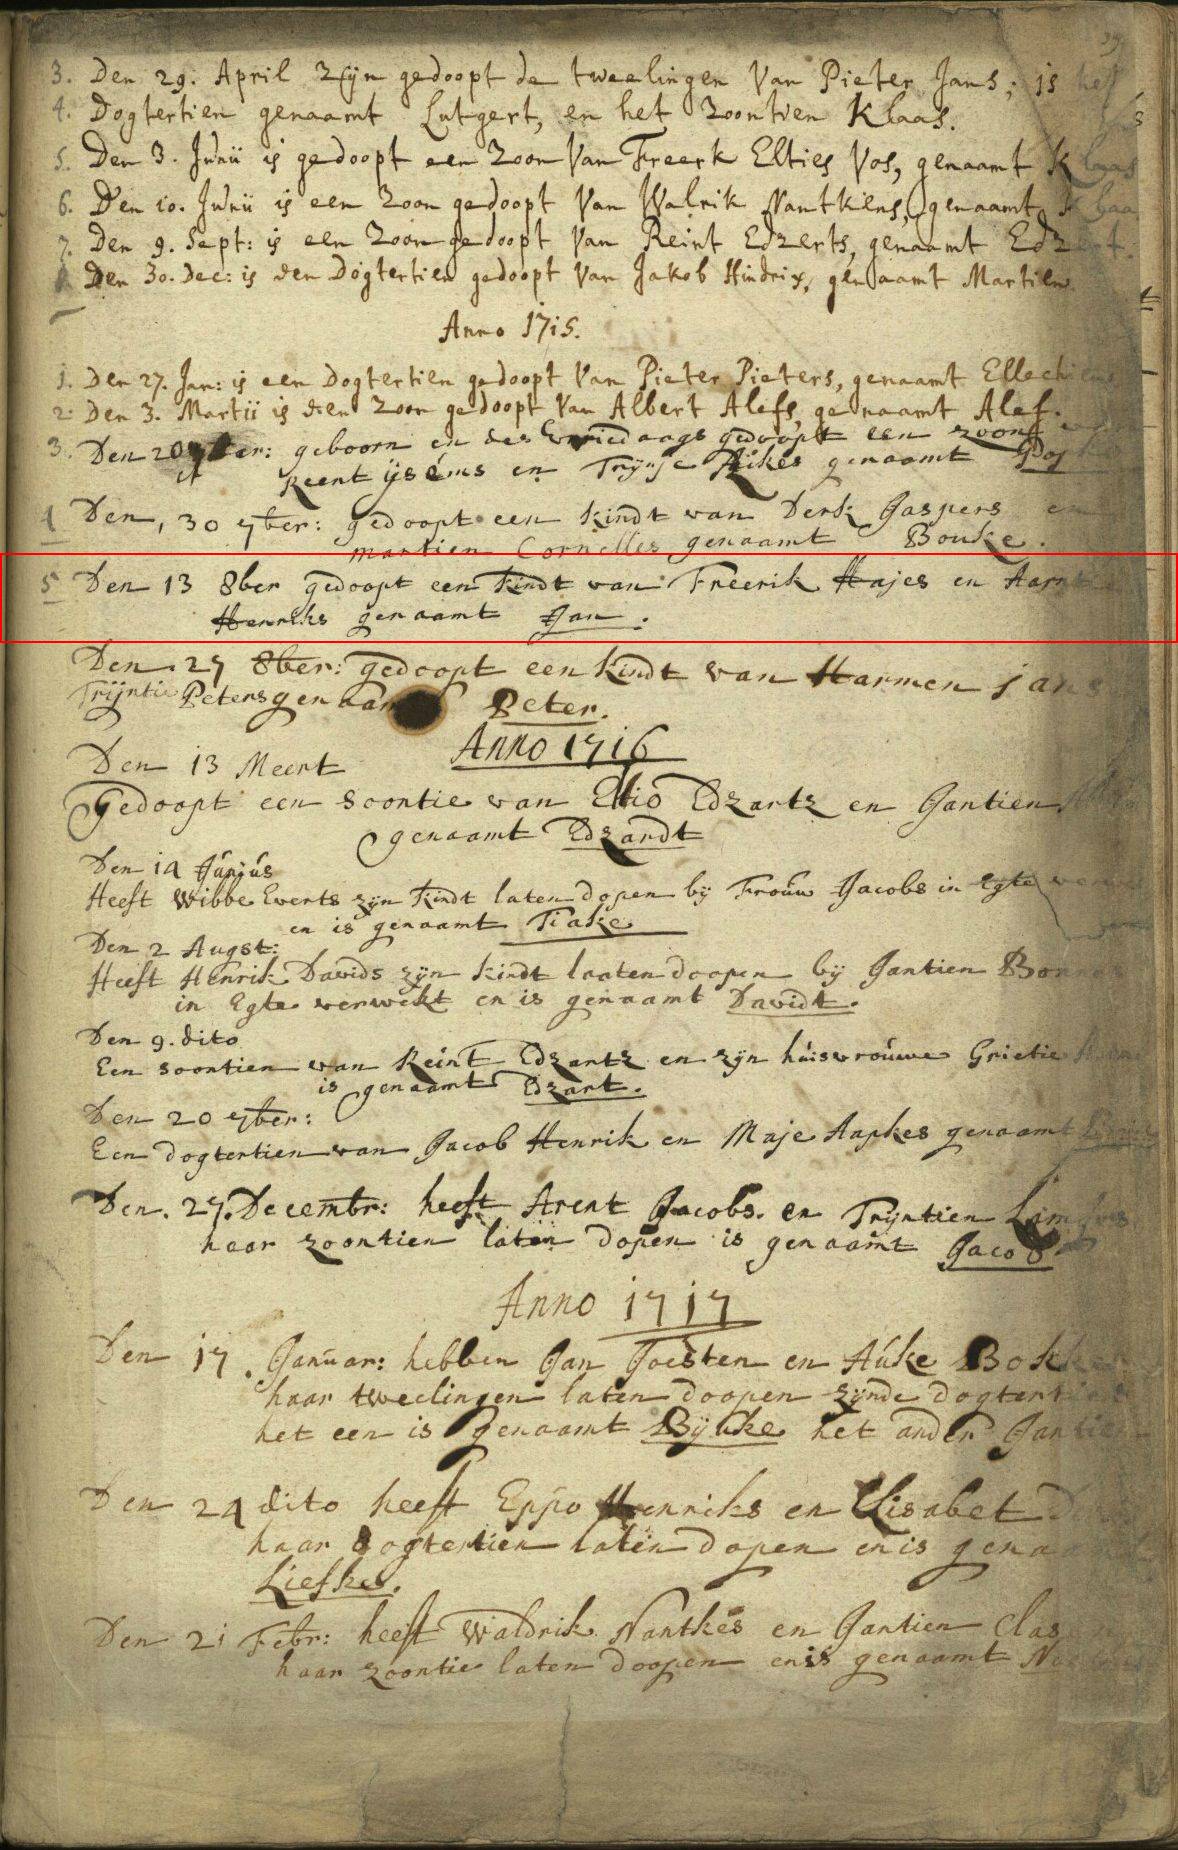 3. Den 29. April Zijn gedoopt de tweelingen Van Pieter Jans; is het
4. Dogtertien genaamt Lutgert, en het Zoontien Klaas.
5. Den 3. Junii is gedoopt een Zoon Van Freerk Elties Vos, genaamt Klaas
6. Den 10. Junii is een Zoon gedoopt Van Walrik Nantkiens, genaamt Klaa
7. Den 9. Sept: is een Zoon gedoopt Van Reint Edzerts, genaamt Edzert.
Den 30. Dec: is een Dogtertien gedoopt Van Jakob Hindrix, genaamt Martien
Anno 1715.
1. Den 27. Jan: is een Dogtertien gedoopt Van Pieter Pieters, genaamt Ellechiens
2. Den 3. Martii is een Zoon gedoopt Van Albert Alefs, genaamt Alef.
3. Den 20 geboorn en des vriedaags gedoopt een zoon
Reent ijsems en Trijnje Aikes genaamt
4 Den, 30 7ber: gedoopt een kindt van Derk Jaspers en
martien Cornelles genaamt Bouke.
5 Den 13 8ber gedoopt een kindt van Freerik Hajes en
Henriks genaamt Jan.
Den 27 8ber: gedoopt een kindt van Harmen jans
Trijntie Peters genaam Peter.
Anno 1716
Den 13 Meert
Gedoopt een soontie van Eltio Edzartz en Jantien
genaamt Edzardt
Den 14 Junjus
Heeft Wibbe Everts zijn kindt laten dopen bij Frouw Jacobs in Egte
en is genaamt Tiake
Den 2 Augst:
Heeft Henrik Davids zijn kindt laaten doopen bij Jantien
in Egte verwekt en is genaamt Davidt.
Den 9. dito
Een soontien van Reint Edzartz en zijn huisvrouwe Grietie
is genaamt Edzart.
Den 20 7ber:
Een dogtertien van Jacob Henrik en Maje Aapkes genaamt
Den. 27. Decembr: heeft Arent Jacobs. en Trijntien
haar zoontien laten dopen is genaamt Jacob
Anno 1717
Den 17. Januar: hebben Jan Joesten en Auke
haar tweelingen laten doopen zijnde dogtertien
het een is genaamt Bijuke het ander Jantien
Den 24 dito heeft Eppo Henriks en Elisabet
haar dogtertien laten dopen en is gena
Liefke.
Den 21 Febr: heeft Waldrik Nantkes en Jantien Clas
haar zoontie laten doopen en is genaamt